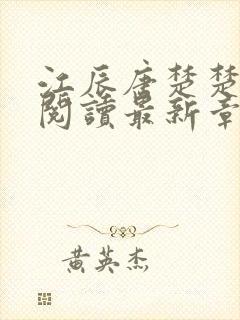 江辰唐楚楚
閱讀最新章
黄英杰